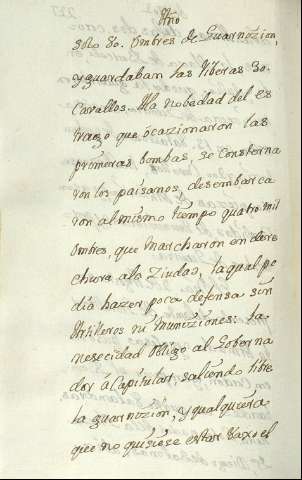 Año
solo 80. Ombres de Guarnozion,
y guardaban las Riberas 30.
Cavallos. A la nobedad del es
trago que ocazionaron las
primeras bombas, se consterna
ron los paisanos, desembarca
ron al mismo tiempo quatro mil
Ombres, que marcharon en dere
chura a la Ziudad, la qual po
dia hazer poca defensa sin
Artilleros ni Muniziones: la
nesecidad obligo al Goberna
dor â Capitular, saliendo libre
la guarnizion, y qualquiera
que no quisiese estar vaxo el